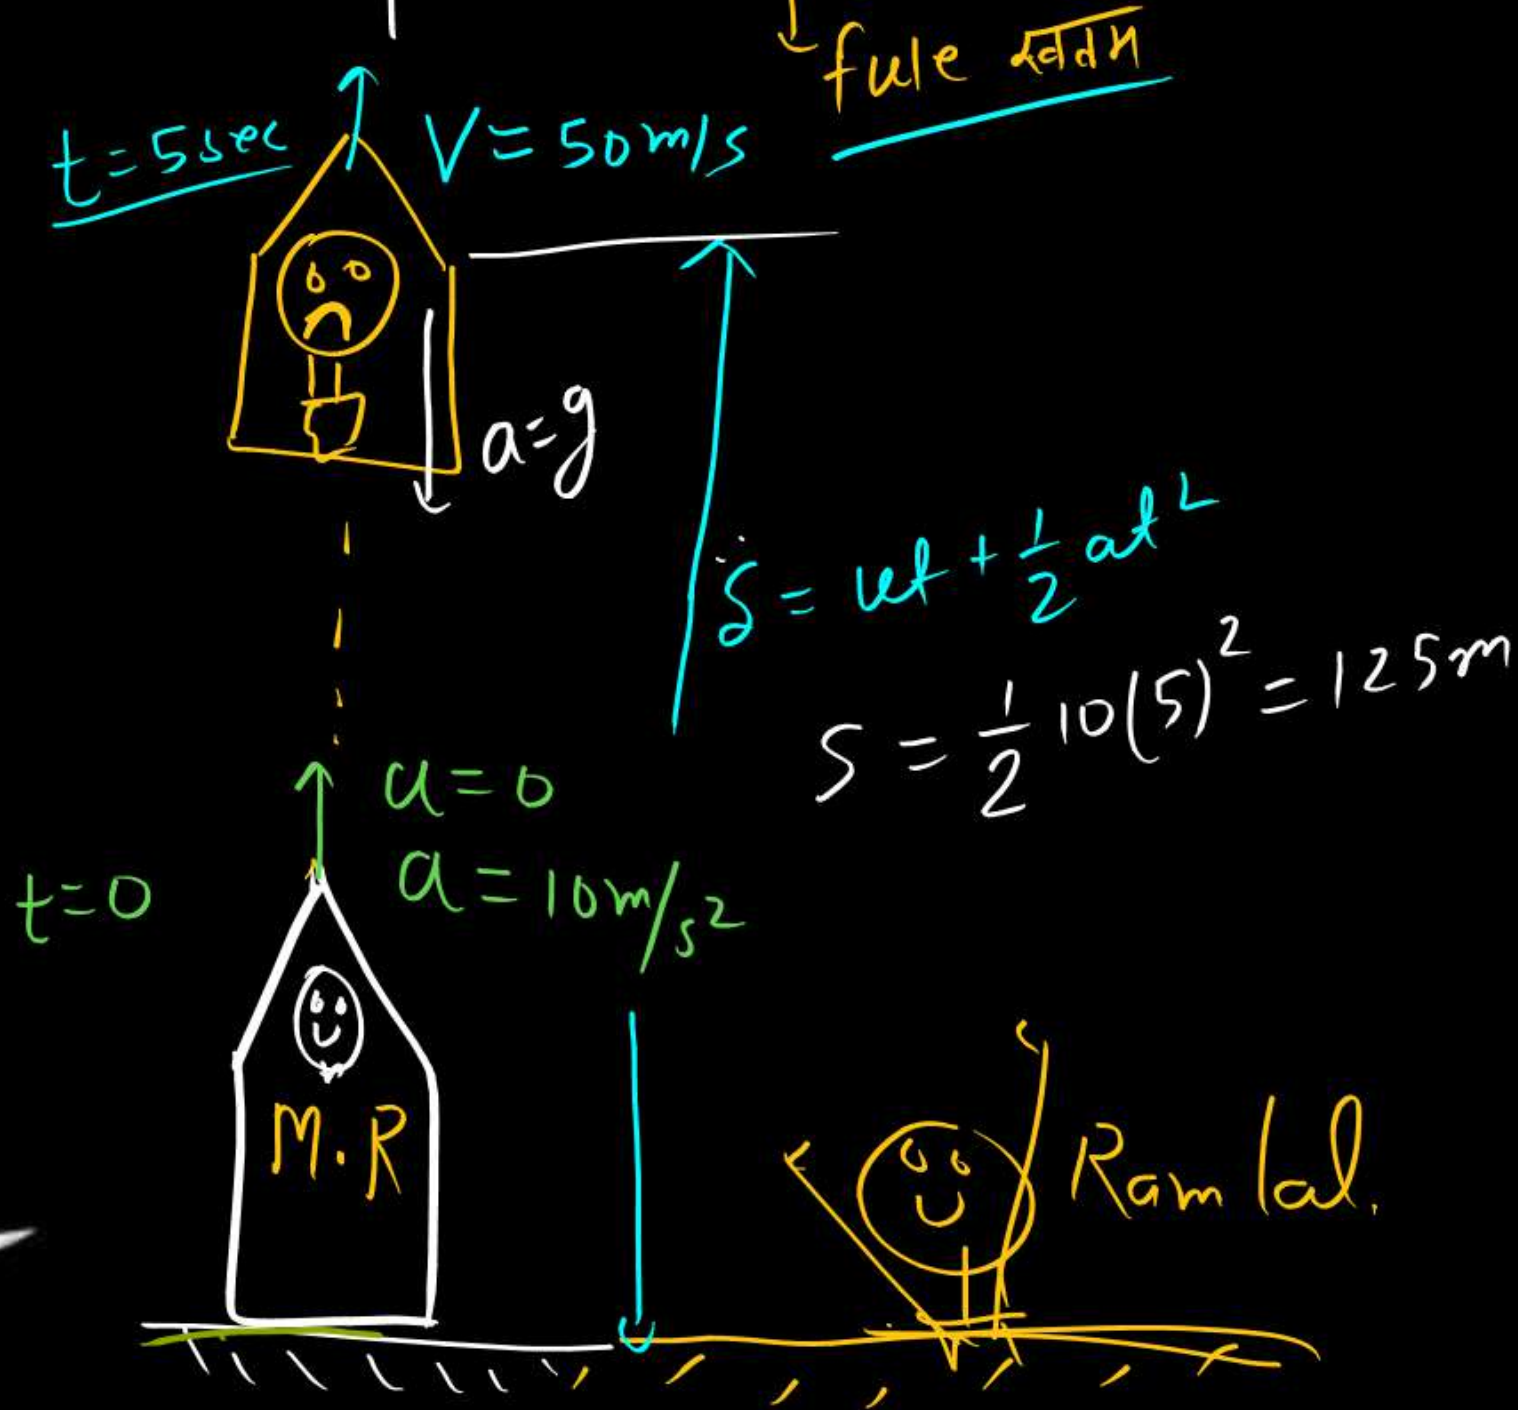 fule खतम
t=5sec
V=50m/s
a=g
S = ut + 1/2 at²
S = 1/2 10(5)² = 125m
u=0
t=0
a=10m/s²
M.R
Ram lal.